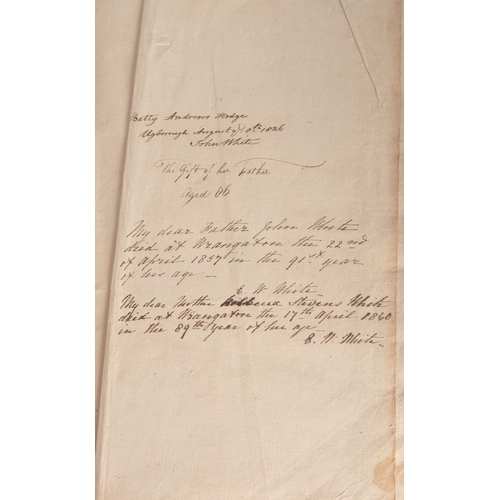 Betty Andrews Hodge
Ugborough August ye 10th 1826
John White
The Gift of his Father
Aged 66
My dear Father John White
died at Wrangaton the 22nd
of April 1857 in the 91st year
of his age –
E. W. White
My dear Mother Rebecca Stevens White
died at Wrangaton the 17th April 1860
in the 89th year of her age
E. W. White